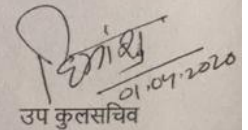 हिमांशु
01.04.2020
उप कुलसचिव